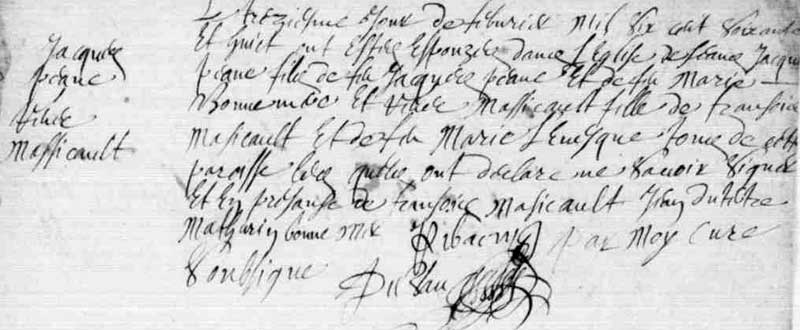 Jacques
piane
Vthée
Massicault
Le trezieme Jour de febvrier mil six cent soixante
Et huict ont Esté Espouzés dans l'Eglise de Jacques
piane fils de feu Jacques piane Et de feu Marie
Bonne mère Et Massicault fille de françois
Masicault Et de feu Marie Levesque tous de cette
paroisse lesquels ont declaré ne scavoir signer
Et En presance de françois Masicault Jean
Mathurin bonne mer par Moy Curé
soubsigne